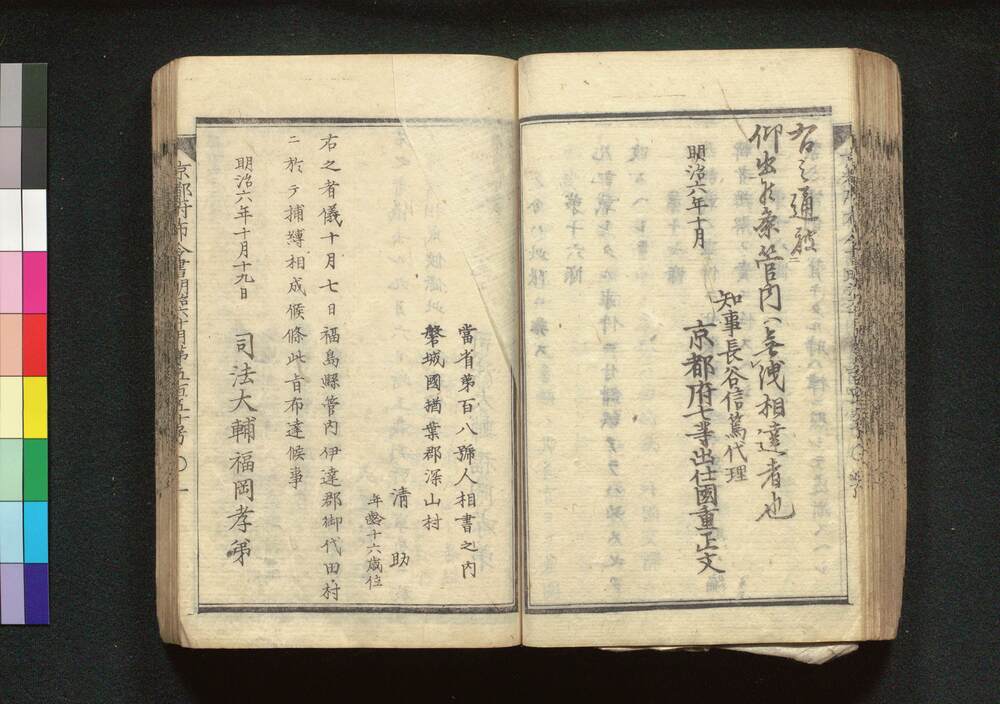 右之通被
仰出候条管内ヘ無洩相達者也
明治六年十月
知事長谷信篤代理
京都府七等出仕國重正文
當省第百八號人相書之内
磐城國楢葉郡深山村
清助
年齡十六歳位
右之者儀十月七日福島縣管内伊達郡御代田村
ニ於テ捕縛相成候條此旨布達候事
明治六年十月十九日
司法大輔福岡孝弟
京都府布令書明治六年十月第五百五十号〇一